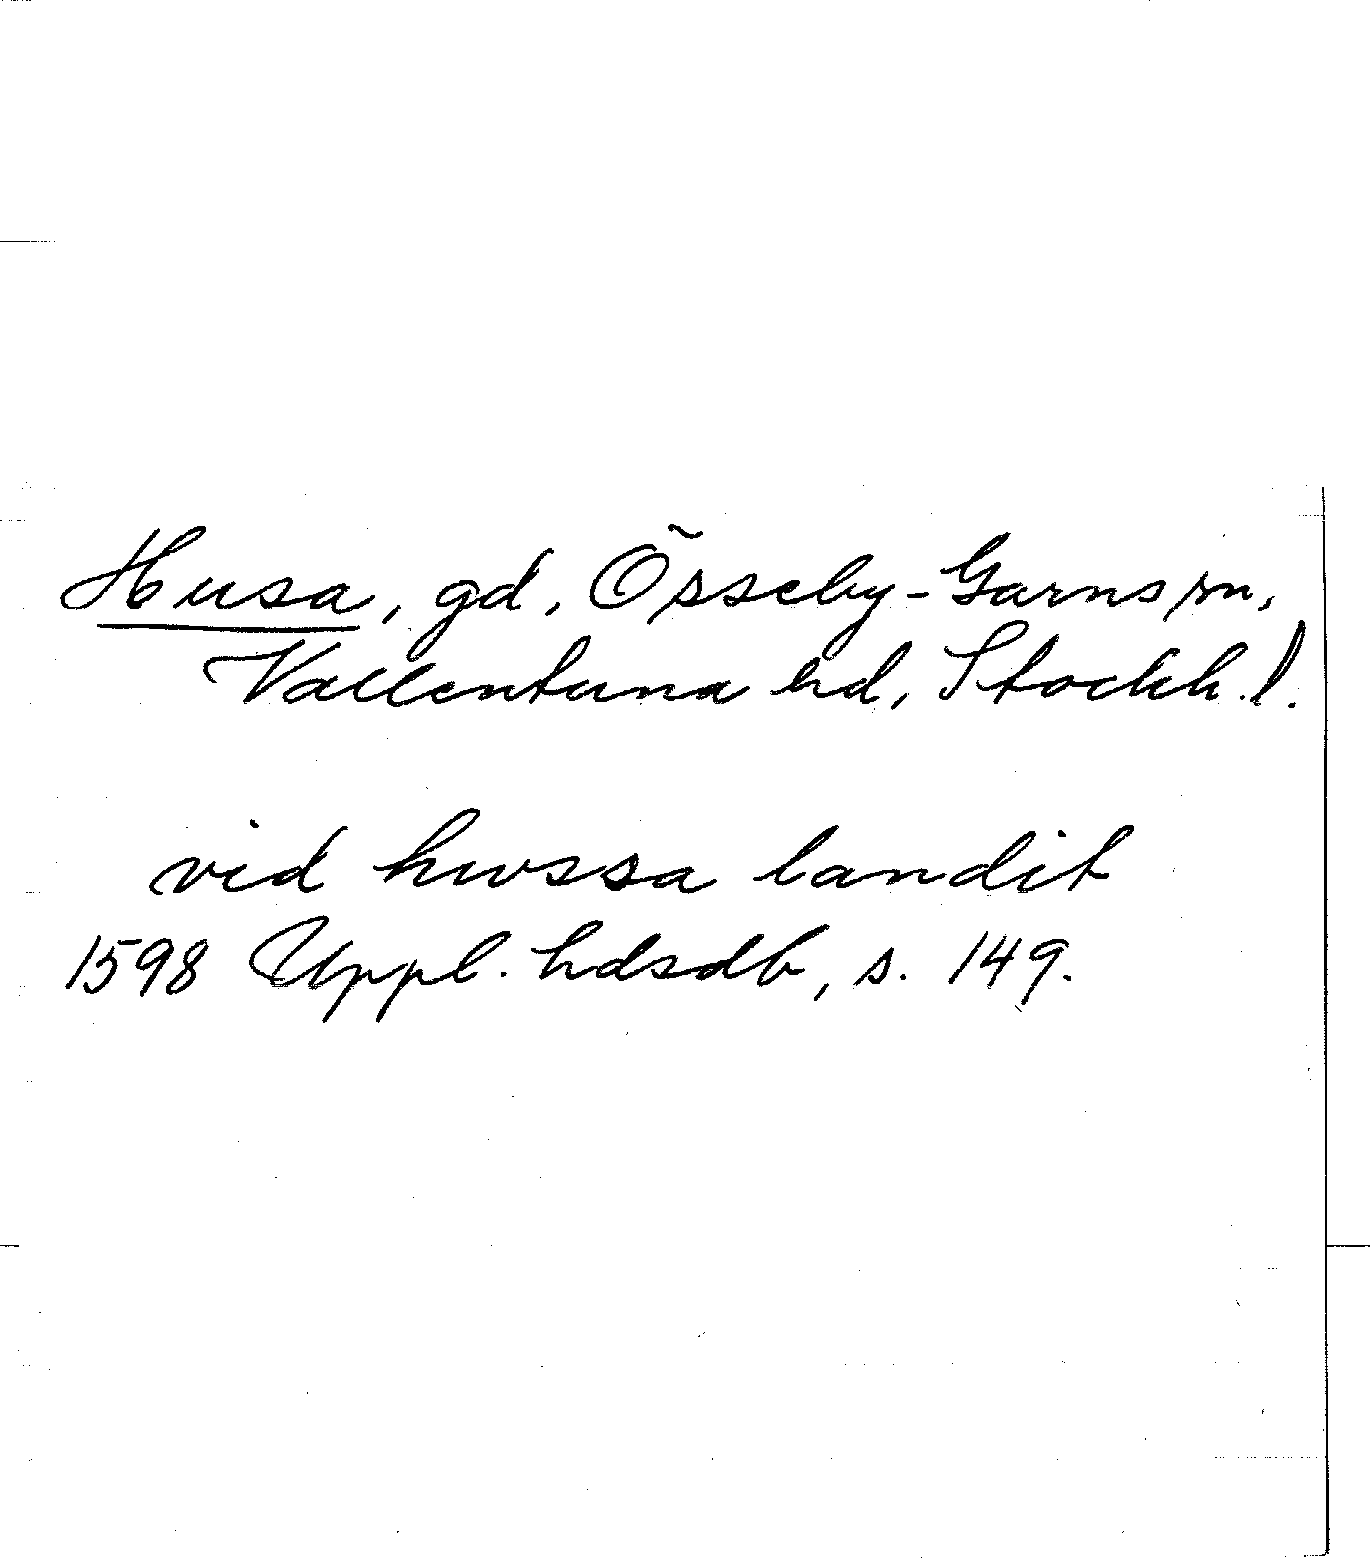 Husa, gd, Össeby-Garns sn,
Vallentuna hd, Stockh. l.
vid hwssa landit
1598 Uppl. hdsdb, s. 149.